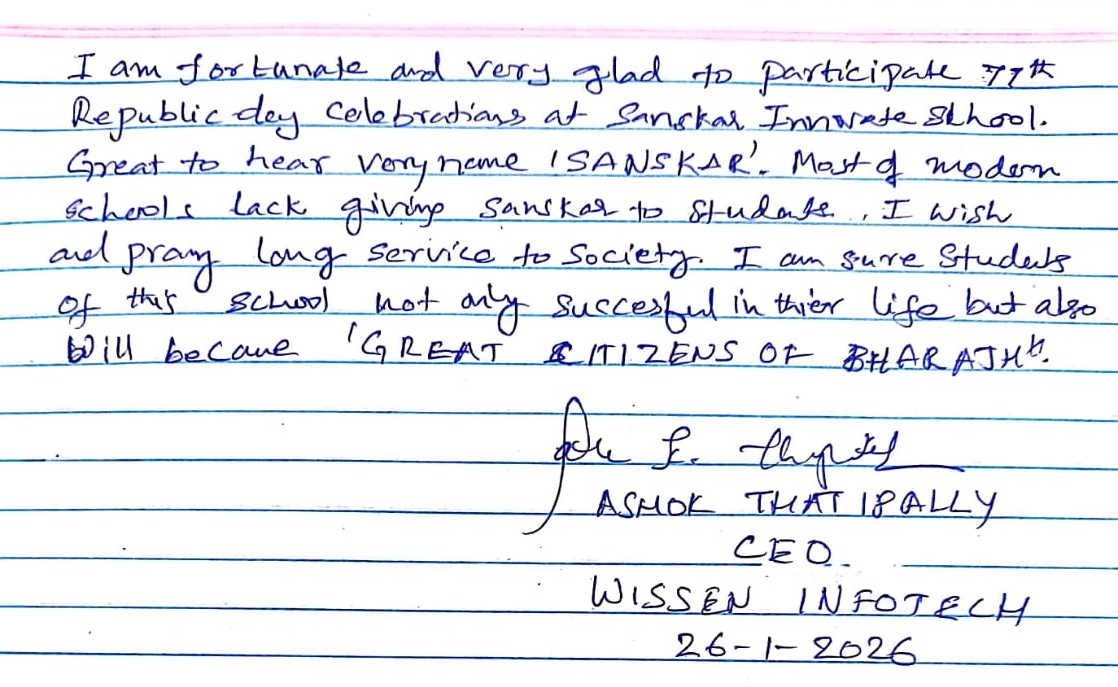 I am fortunate and very glad to participate 77th
Republic dey Celebrations at Sanskar Innovate School.
Great to hear very name 'SANSKAR'. Most of modern
schools lack giving Sanskar to Students., I wish
and pray long service to Society. I am sure Students
of this school not only succesful in thier life but also
Will become 'GREAT CITIZENS OF BHARATH'.
ASHOK THATIPALLY
CEO.
WISSEN INFOTECH
26-1-2026